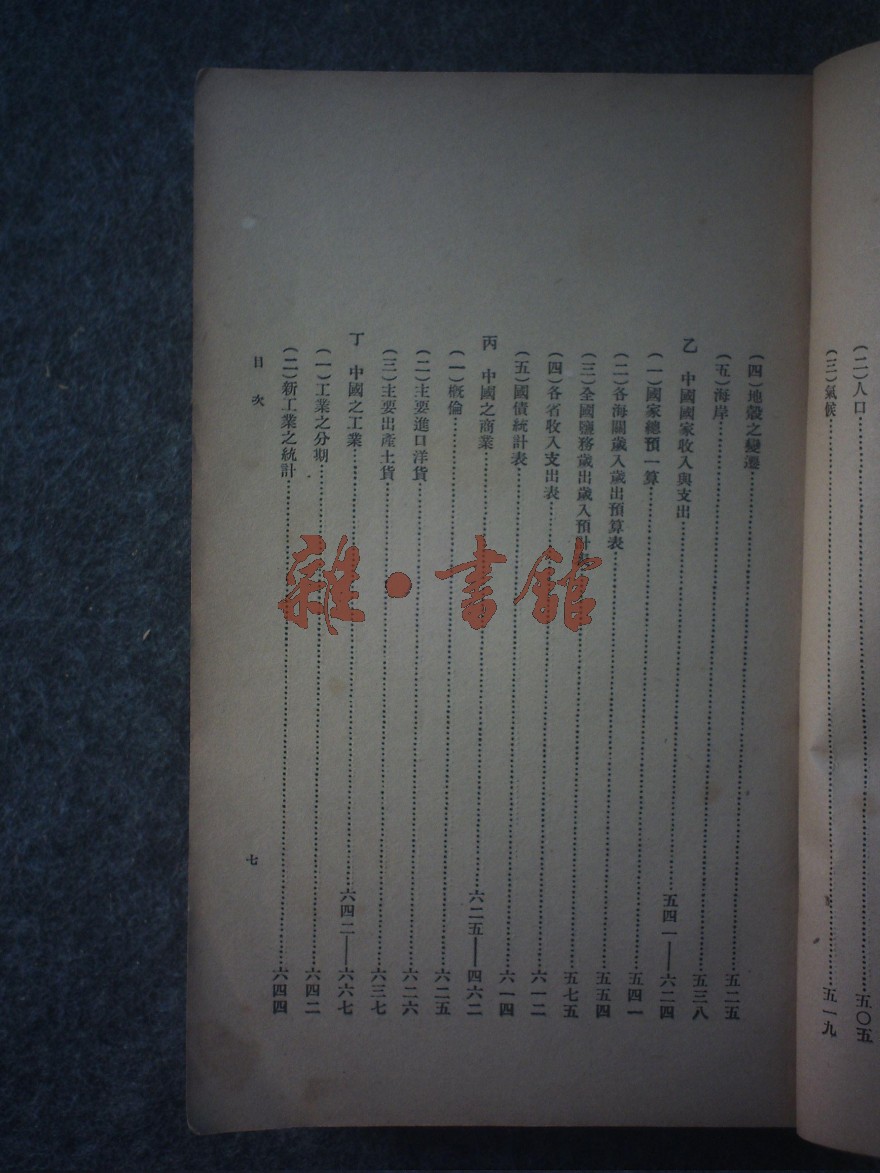 (二)人口……五〇五
(三)氣候……五一九
(四)地殼之變遷……五二五
(五)海岸……五三八
乙 中國國家收入與支出……五四一——六二四
(一)國家總預一算……五四一
(二)各海關歲入歲出預算表……五五四
(三)全國鹽務歲出歲入預計表……五七五
(四)各省收入支出表……六一二
(五)國債統計表……六一四
丙 中國之商業……六二五——四六二
(一)概倫……六二五
(二)主要進口洋貨……六二六
(三)主要出產土貨……六三七
丁 中國之工業……六四二——六六七
(一)工業之分期……六四二
(二)新工業之統計……六四四
目次
七
雜·書館